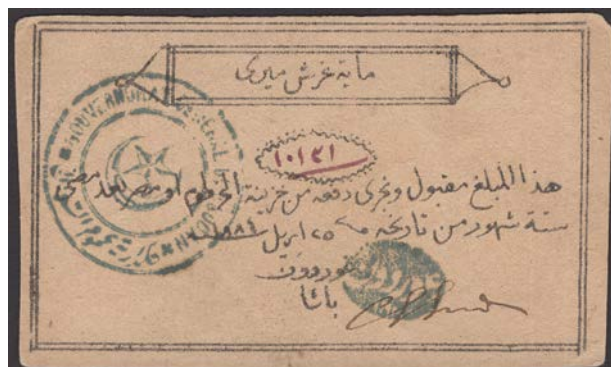 ماية غرش ميرى
GOUVERNORAT GENERAL
١٠١٢١
هذا المبلغ مقبول ويجرى دفعه من خزينة الخرطوم او مصر بعد مضى
ستة شهور من تاريخه ٢٥ ابريل ١٨٨٤
غوردون
باشا